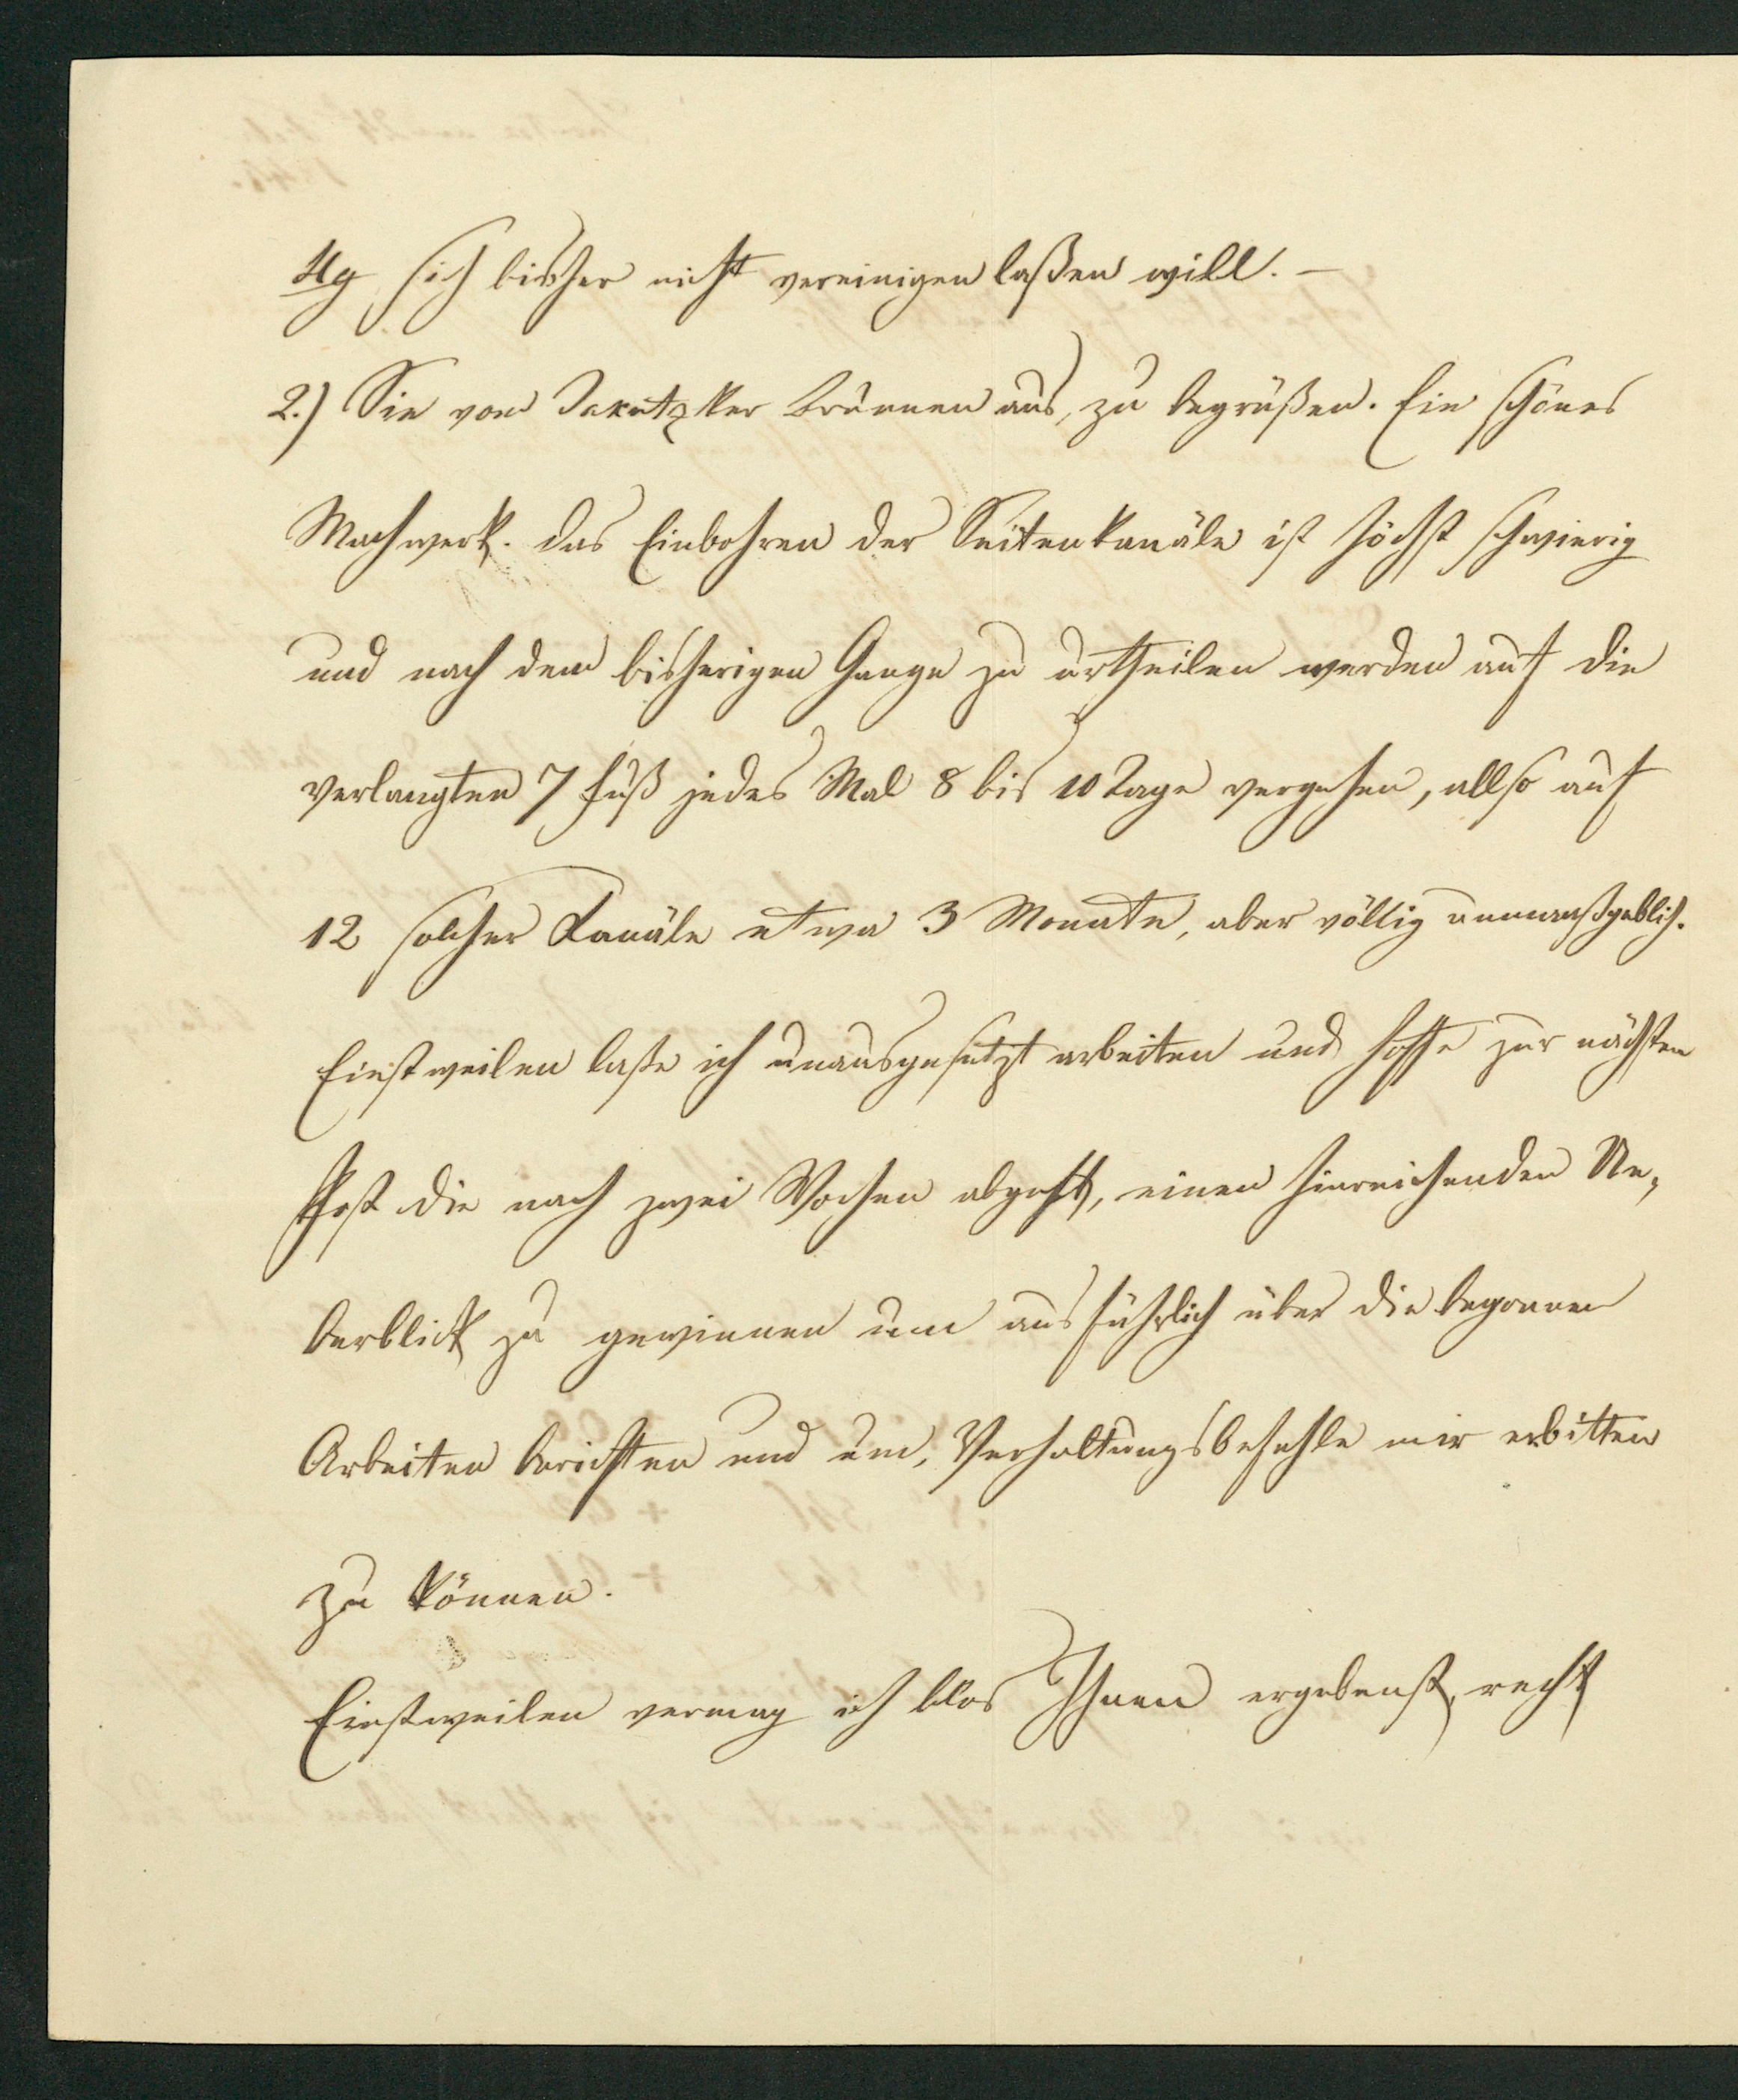 Hg sich bisher nicht vereinigen laßen will. –
2.) Sie vom Jakutzker Brunnen aus, zu begrüßen. Ein schönes
Machwerk. das Einbohren der Seitenkanäle ist höchst schwierig
und nach dem bisherigen Gange zu urtheilen werden auf die
verlangten 7 Fuß jedes Mal 8 bis 10 Tage vergehen, allso auf
12 solcher Kanäle etwa 3 Monate, aber völlig unmaaßgeblich.
Einstweilen laße ich unausgesetzt arbeiten und hoffe zur nächsten
Post die nach zwei Wochen abgeht, einen hinreichenden Ue,
berblick zu gewinnen um ausführlich über die begonnen
Arbeiten berichten und um, Verhaltungsbefehle mir erbitten
zu können.
Einstweilen vermag ich blos Ihnen ergebenst, recht